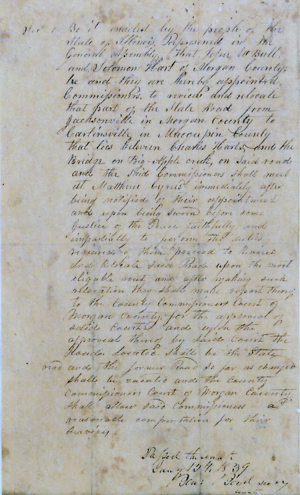 Be it enacted by the people of the
State of Illinois Represented in the
General assembly, That
and Solomon Hart of Morgan County
be and they are hereby appointed
Commissioners to review and relocate
that part of the State Road from
Jacksonville in Morgan County to
Carlinsville in Macoupin County
that lies between Charles Harts and the
Bridge on Big Apple creek, on said road
and the Said Commissioners shall meet
at Matthew immediately after
being notified of their appointment
and upon being Sworn before some
Justice of the Peace faithfully and
impartially to perform the duties
required of them proceed to Review
and Relocate said Road upon the most
eligable and after making such
alteration they shall make report there
to the County Commissioners Court of
Morgan County for the approval of
said Court and upon the
approval thereof by said Court the
Located Shall be the State
road and the former Road so far as changed
shall be vacated and the County
Commissioners Court of Morgan County
shall allow said Commissioners a
reasonable compensation for their
Services
Passed
Jany 1839